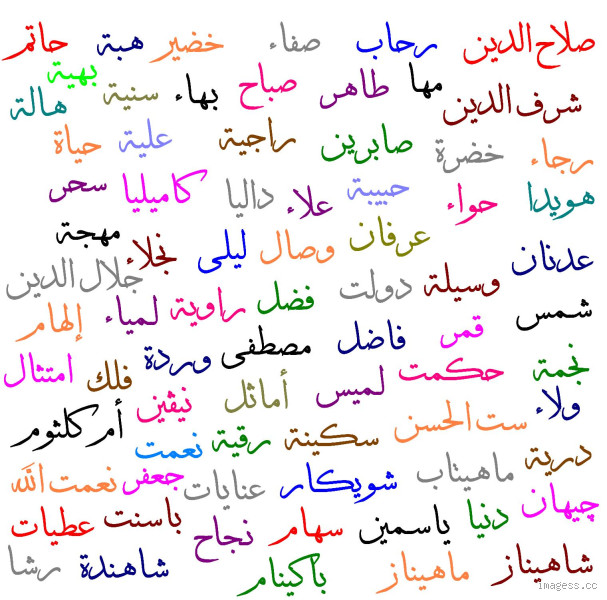 صلاح الدين رحاب صفاء خضير هبة حاتم
شرف الدين مها طاهر صباح بهاء سنية بهية هالة
رجاء خضرة صابرين راجية علية حياة
هويدا حواء حبيبة علاء داليا كاميليا سحر
عدنان عرفان وصال ليلى نجلاء مهجة جلال الدين
شمس وسيلة دولت فضل راوية لمياء إلهام
نجمة قمر فاضل مصطفى وردة فلك امتثال
ولاء حكمت لميس أماثل نيڤين أم كلثوم
درية ست الحسن سكينة رقية نعمت
چيهان ماهيتاب شويكار عنايات جعفر نعمت الله
دنيا ياسمين سهام نجاح باسنت عطيات
شاهيناز ماهيناز باكينام شاهندة رشا
imagess.cc